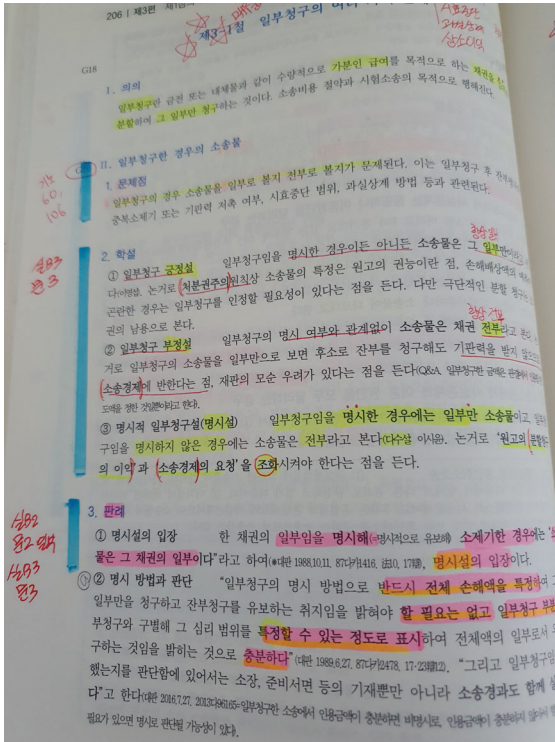 206 | 제3편
제3-1절 일부청구의
G18
I. 의의
일부청구란 금전 또는 대체물과 같이 수량적으로 가분인 급여를 목적으로 하는 채권을
분할하여 그 일부만 청구하는 것이다. 소송비용 절약과 시험소송의 목적으로 행해진다.
II. 일부청구한 경우의 소송물
1. 문제점
일부청구의 경우 소송물을 일부로 볼지 전부로 볼지가 문제된다. 이는 일부청구 후
중복소제기 또는 기판력 저촉 여부, 시효중단 범위, 과실상계 방법 등과 관련된다.
기노
60,
106
2. 학설
① 일부청구 긍정설 일부청구임을 명시한 경우이든 아니든 소송물은 그 일부만이라고
다(이영섭). 논거로 처분권주의원칙상 소송물의 특정은 원고의 권능이란 점, 손해배상액의
곤란한 경우는 일부청구를 인정할 필요성이 있다는 점을 든다. 다만 극단적인 분할 청구는
권의 남용으로 본다.
② 일부청구 부정설 일부청구의 명시 여부와 관계없이 소송물은 채권 전부라고
거로 일부청구의 소송물을 일부만으로 보면 후소로 잔부를 청구해도 기판력을 받지
소송경제에 반한다는 점, 재판의 모순 우려가 있다는 점을 든다(Q&A. 일부청구한 금액은
③ 명시적 일부청구설(명시설) 일부청구임을 명시한 경우에는 일부만 소송물이고
구임을 명시하지 않은 경우에는 소송물은 전부라고 본다(다수설 이시윤). 논거로 '원고의 분할
의 이익'과 '소송경제의 요청'을 조화시켜야 한다는 점을 든다.
3. 판례
① 명시설의 입장 한 채권의 일부임을 명시해(=명시적으로 유보해) 소제기한 경우에는
물은 그 채권의 일부이다"라고 하여(*대판 1988.10.11, 87다카1416, 法10, 17辯), 명시설의 입장이다.
② 명시 방법과 판단 "일부청구의 명시 방법으로 반드시 전체 손해액을 특정하여
일부만을 청구하고 잔부청구를 유보하는 취지임을 밝혀야 할 필요는 없고 일부청구 부분
부청구와 구별해 그 심리 범위를 특정할 수 있는 정도로 표시하여 전체액의 일부로서
구하는 것임을 밝히는 것으로 충분하다"(대판 1989.6.27, 87다카2478, 17·23辯12). "그리고 일부청구임
했는지를 판단함에 있어서는 소장, 준비서면 등의 기재뿐만 아니라 소송경과도 함께
다"고 한다(대판 2016.7.27. 2013다96165=일부청구한 소송에서 인용금액이 충분하면 비명시로, 인용금액이 충분하지
필요가 있으면 명시로 판단될 가능성이 있다).